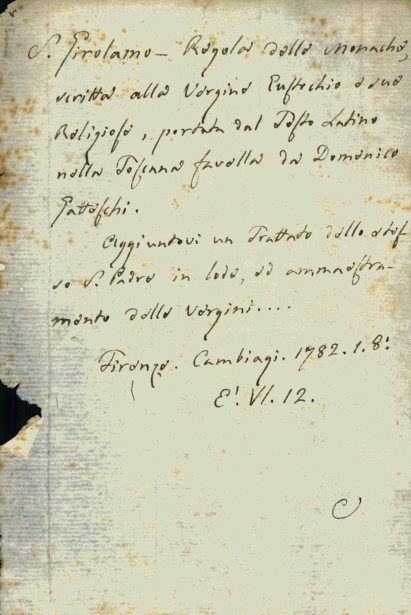 S. Girolamo — Regola delle Monache,
scritta alla Vergine Eustochio e sue
Religiose, portata dal Testo Latino
nella Toscana favella da Domenico
Gatteschi.
Aggiuntovi un Trattato dello stes-
so S. Padre in lode, ed ammaestra-
mento delle Vergini....
Firenze. Cambiagi. 1782. 1. 8.
E. VI. 12.